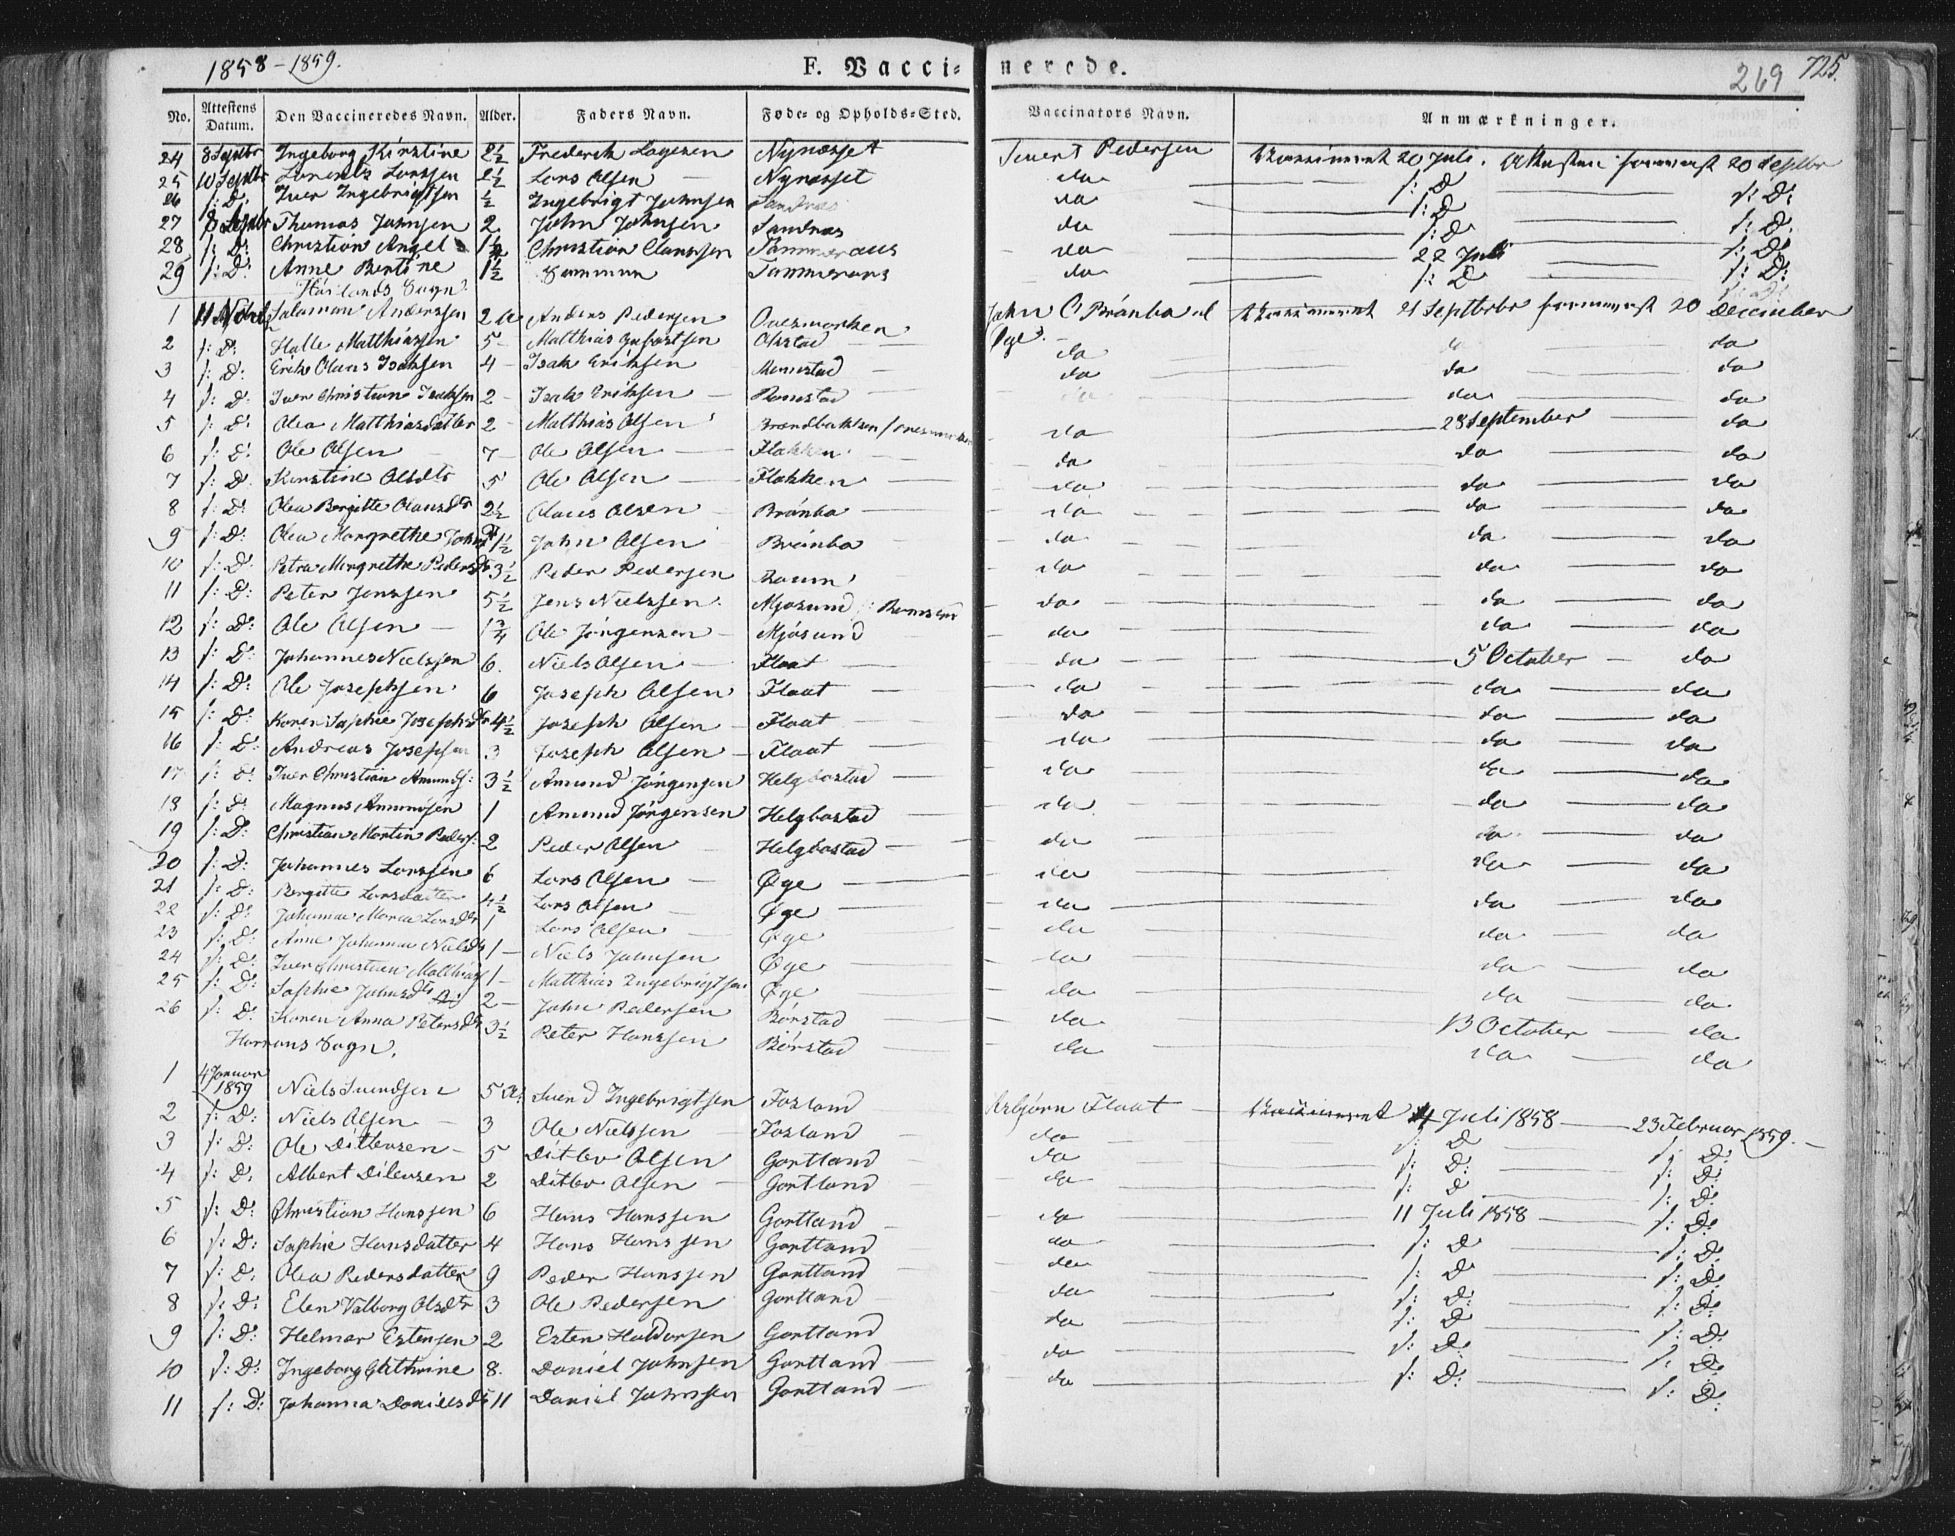 1858-1859. F. Vaccinerede. 269 725.
No. Attestens Datum. Den Vaccineredes Navn. Alder. Faders Navn. Føde- og Opholds-Sted. Vaccinators Navn. Anmærkninger.
24 8 Septbr Ingeborg Kirstine 2½ Frederik Nynæsset Siuert Pedersen Vaccineret 20 Juli. Attesten fremvist 20 Septbr
25 10 Septbr Lorentz Larssen 2½ Lars Olsen Nynæsset do f: D f: D:
26 f: D. Iver Ingebrigtsen ½ Ingebrigt Johnsen Sandnæs do f: D f: D:
27 8 Septbr Thomas Johnsen 2 John Johnsen Sandnæs do f: D f: D:
28 f: D: Christian Angel 1½ Christian Claussen do 22 Juli f: D:
29 f: D: Anne Bertine 1½ do f: D f: D:
Høilands Sogn.
1 11 Novbr Salamon Anderssen 2 A Anders Pedersen Ouesmarken John C Brønbo vl Vaccineret 21 Septbr fremvist 20 December
Øye
2 f: D: Halle Matthiassen 5 Matthias Olsstad do do
3 f: D: Erik Olaus Isaksen 4 Isak Eriksen Romstad do do do
4 f: D: Iver Christian Isaksen 2 Isak Eriksen Romstad do do do
5 f: D: Olea Matthiasdatter 2 Matthias Olsen Brandbakken / Ouesmarken do 28 September do
6 f: D: Ole Olsen 7 Ole Olsen Flakken do do do
7 f: D: Kirstine Olsdtr 5 Ole Olsen Flakken do do do
8 f: D: Olea Bergitte Olausdtr 2½ Olaus Olsen Brønbo do do do
9 f: D: Olea Margrethe Johnsdtr 1½ John Olsen Brønbo do do do
10 f: D: Petra Margrethe Pedersdtr 3½ Peder Pedersen do do do
11 f: D: Peter Jenssen 5½ Jens Nielssen Mjøsund do do do
12 f: D: Ole Olsen 1¾ Ole Jørgensen Mjøsund do do do
13 f: D: Johannes Nielssen 6. Niels Olsen Flaat do 5 October do
14 f: D: Ole Josephsen 6 Joseph Olsen Flaat do do do
15 f: D: Karen Sophie Josephsdtr 4½ Joseph Olsen Flaat do do do
16 f: D: Andreas Josephsen 3 Joseph Olsen Flaat do do do
17 f: D: Iver Christian Amunds: 3½ Amund Jørgensen Helgbostad do do do
18 f: D: Magnus Amundsen 1 Amund Jørgensen Helgbostad do do do
19 f: D: Christian Martin Peders: 2 Peder Olsen Helgbostad do do do
20 f: D: Johannes Larssen 6 Lars Olsen Øye do do do
21 f: D: Bergitte Larsdatter 4½ Lars Olsen Øye do do do
22 f: D: Johanna Maria Larsdtr 1 Lars Olsen Øye do do do
23 f: D: Anne Johanna Nielsdtr 1 Niels Johnsen Øye do do do
24 f: D: Iver Christian Matthias 1 Matthias Ingebrigtsen Øye do do do
25 f: D: Sophie Johnsdtr 2 John Pedersen Børstad do 13 October do
26 f: D: Karen Anna Petersdtr 3½ Peter Hanssen Børstad do do do
Harrans Sogn.
1 4 Januar 1859 Niels Svendsen 5 A. Svend Ingebrigtsen Fosland Asbjørn Flaat Vaccineret 4 Juli 1858 23 Februar 1859.
2 f: D: Niels Olsen 3 Ole Nielssen Fosland do f: D f: D:
3 f: D: Ole Ditlevsen 5 Ditlev Olsen Gartland do f: D: f: D:
4 f: D. Albert Dilevsen 2 Ditlev Olsen Gartland do f: D f: D:
5 f: D: Christian Hanssen 6 Hans Hanssen Gartland do 11 Juli 1858 f: D:
6 f: D: Sophie Hansdatter 4 Hans Hanssen Gartland do f: D f: D:
7 f: D. Olea Pedersdatter 9 Peder Hanssen Gartland do f: D f: D:
8 f: D: Elen Valborg Olsdtr 3 Ole Pedersen Gartland do f: D: f: D:
9 f: D: Helmer Estensen 2 Esten Haldorsen Gartland do f: D f: D:
10 f: D: Ingeborg Cathrine 8. Daniel Johnsen Gartland do f: D: f: D:
11 f: D: Johanna Danielsdtr 11 Daniel Johnssen Gartland do f: D: f: D: